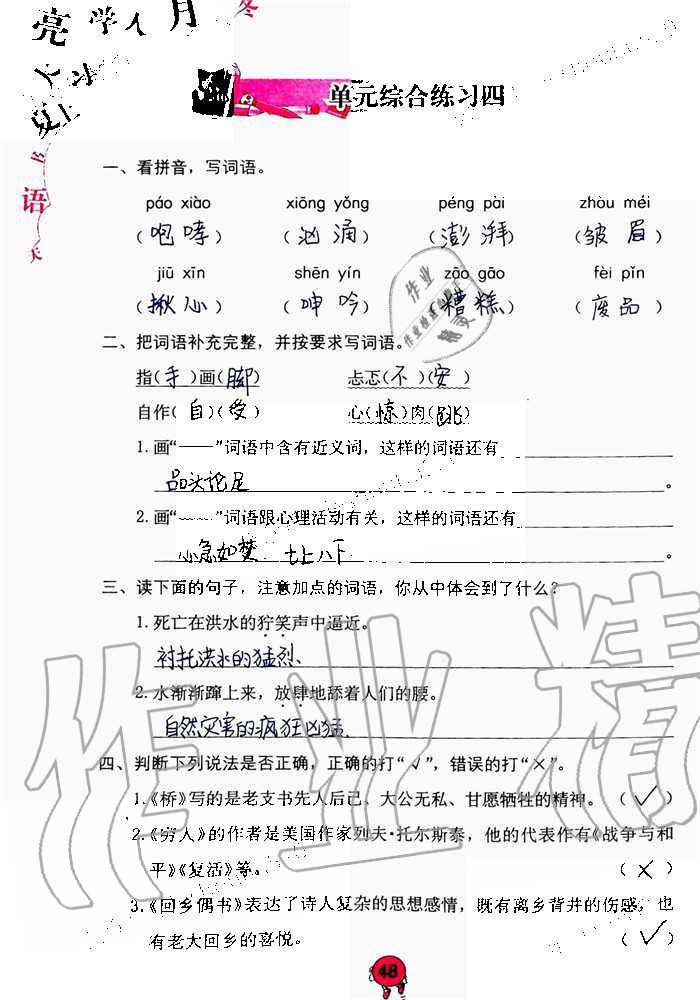 亮 学 人 月 冬
人 习
夏 上
书
语
天
单元综合练习四
一、看拼音,写词语。
páo xiào xiōng yǒng péng pài zhòu méi
(咆哮) (汹涌) (澎湃) (皱眉)
jiū xīn shēn yín zāo gāo fèi pǐn
(揪心) (呻吟) (糟糕) (废品)
二、把词语补充完整,并按要求写词语。
指(手)画(脚) 忐忑(不)(安)
自作(自)(受) 心(惊)肉(跳)
1. 画“——”词语中含有近义词,这样的词语还有
品头论足。
2. 画“﹏﹏”词语跟心理活动有关,这样的词语还有
心急如焚 七上八下。
三、读下面的句子,注意加点的词语,你从中体会到了什么?
1. 死亡在洪水的狞笑声中逼近。
衬托洪水的猛烈、
2. 水渐渐蹿上来,放肆地舔着人们的腰。
自然灾害的疯狂凶猛
四、判断下列说法是否正确,正确的打“√”,错误的打“×”。
1.《桥》写的是老支书先人后己、大公无私、甘愿牺牲的精神。 (√)
2.《穷人》的作者是美国作家列夫·托尔斯泰,他的代表作有《战争与和
平》《复活》等。 (×)
3.《回乡偶书》表达了诗人复杂的思想感情,既有离乡背井的伤感,也
有老大回乡的喜悦。 (√)
48
作业精灵
作业检查小助手
作业精